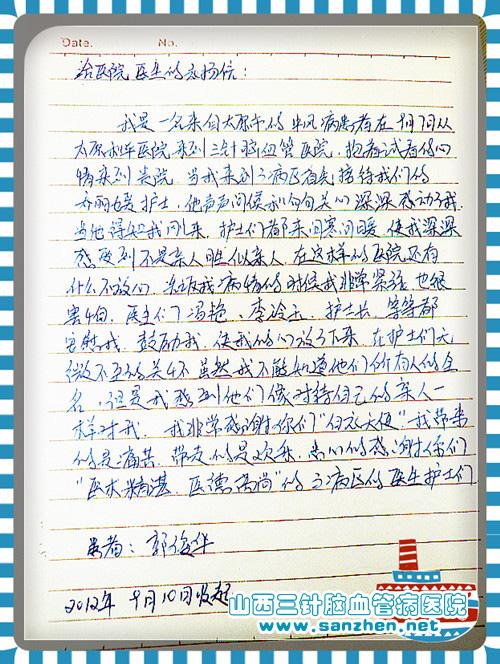 Date. No.
给医院医生的表扬信:
我是一名来自太原市的中风病患者在9月7日从
太原利华医院来到三针脑血管医院,抱着试看的心
情来到贵院,当我来到三病区首先接待我们的
乔丽媛护士,他声声问候和句句关心深深感动了我,
当他得知我回来,护士们都来问寒问暖,使我深深
感受到不是亲人胜似亲人,在这样的医院还有
什么不放心,我病情的时候我非常紧张,也很
害怕,医生们冯艳、李冷玉、护士长、等等都
安慰我、鼓励我,使我的心放了下来,在护士们无
微不至的关怀,虽然我不能知道他们所有人的全
名,但是我感到他们像对待自己的亲人一
样对我,我非常感谢你们"白衣天使"我带来
的是痛苦,带走的是欢乐,衷心的感谢你们
"医术精湛,医德高尚"的三病区的医生护士们
患者:郭俊华
2012年9月10日
山西三针脑血管病医院
www.sanzhen.net